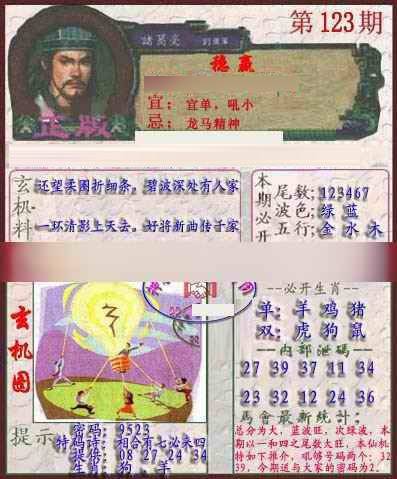 第123期
諸葛亮
稳赢
宜：宜单，吼小
忌：龙马精神
正版
玄机料
还望柔阑折细条。碧波深处有人家
一环清影上天去。好将新曲传子家
本期必开
尾数；123467
波色；绿 蓝
五行；金 水 木
--必开生肖--
单：羊 鸡 猪
双：虎 狗 鼠
--内部泄码--
27 39 37 11 34
23 32 12 24 36
馬會最新統計：
总分为大，蓝波旺，次绿波，本
期以一和四之尾数大旺，本仙机
特如下推介，吼够号码两个：32
39，今期送与大家的密码为2。
玄机图
提示
密码：9523
特码诗：相合有七必来四
提供：08 27 24 34
生肖：狗 羊